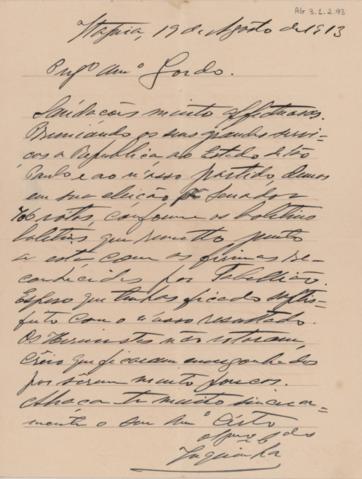 AG 3.2.2.93
Itapira, 19 de Agosto de 1913
Gordo.
Saudações muito affectuosas.
os seus grandes servi-
ços a Republica, ao Estado de São
Paulo e ao nosso partido, demos
em sua eleição Senador
votos, conforme os boletins
boletins que remetto junto
a esta com as firmas re-
conhecidas por Tabellião.
Espero que tenhas ficado satis-
feito com o nosso resultado.
Os não votaram,
Creio que ficaram envergonhados
por serem muito poucos.
Abraça-te muito sincera-
mente o seu Amº